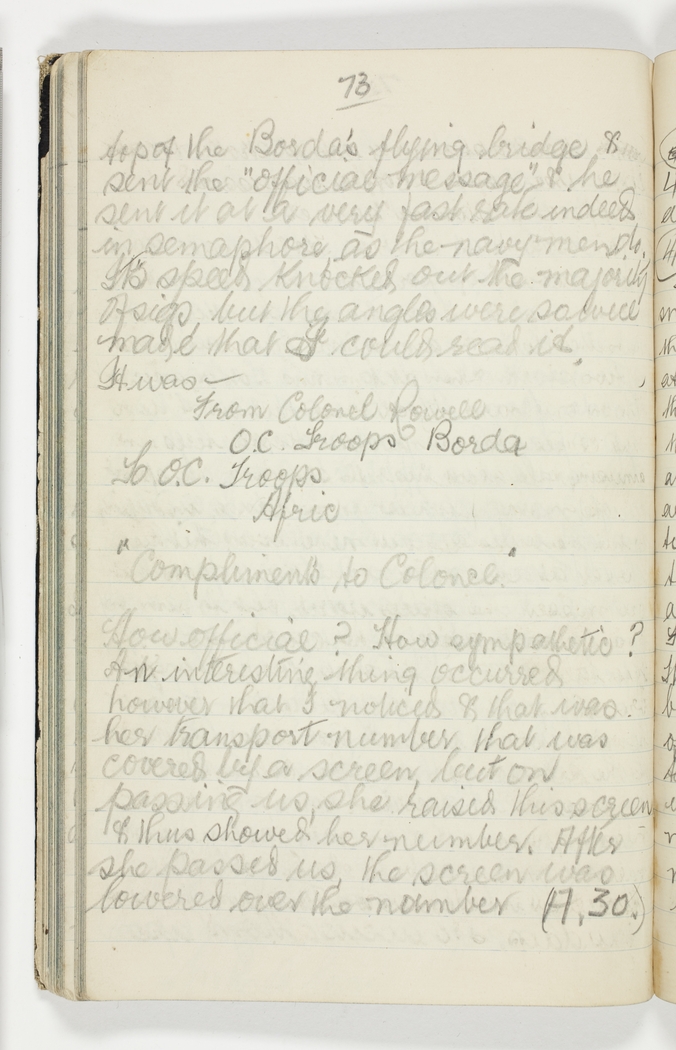 73
top of the Borda's flying bridge &
sent the "official message" & he
sent it at a very fast rate indeed
in semaphore, as the navy men do.
Its speed knocked out the majority
of sigs, but the angles were so well
made that I could read it.
It was –
From Colonel Rowell
O.C. Troops Borda
To O.C. Troops
Afric
"Compliments to Colonel."
How official? How sympathetic?
An interesting thing occurred
however that I noticed & that was
her transport number that was
covered by a screen, but on
passing us, she raised this screen
& thus showed her number. After
she passed us, the screen was
lowered over the number (A.30.)